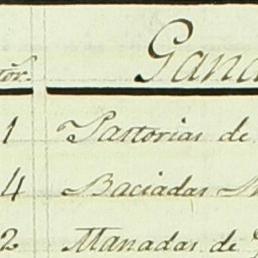 Gana
1 Pastorias de
4 Baciadas
2 Manadas de